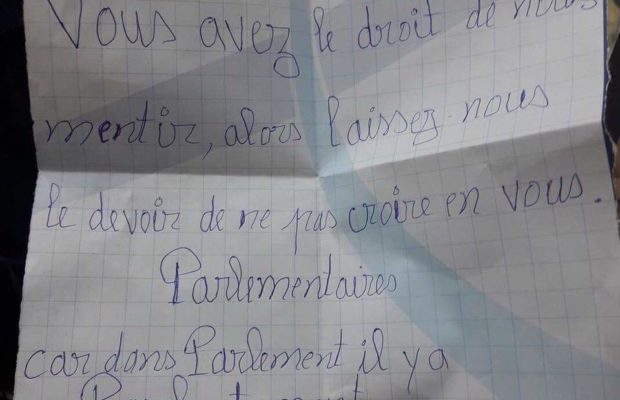 Vous avez le droit de nous
mentir, alors laissez-nous
le devoir de ne pas croire en vous.
Parlementaires
car dans Parlement il y a